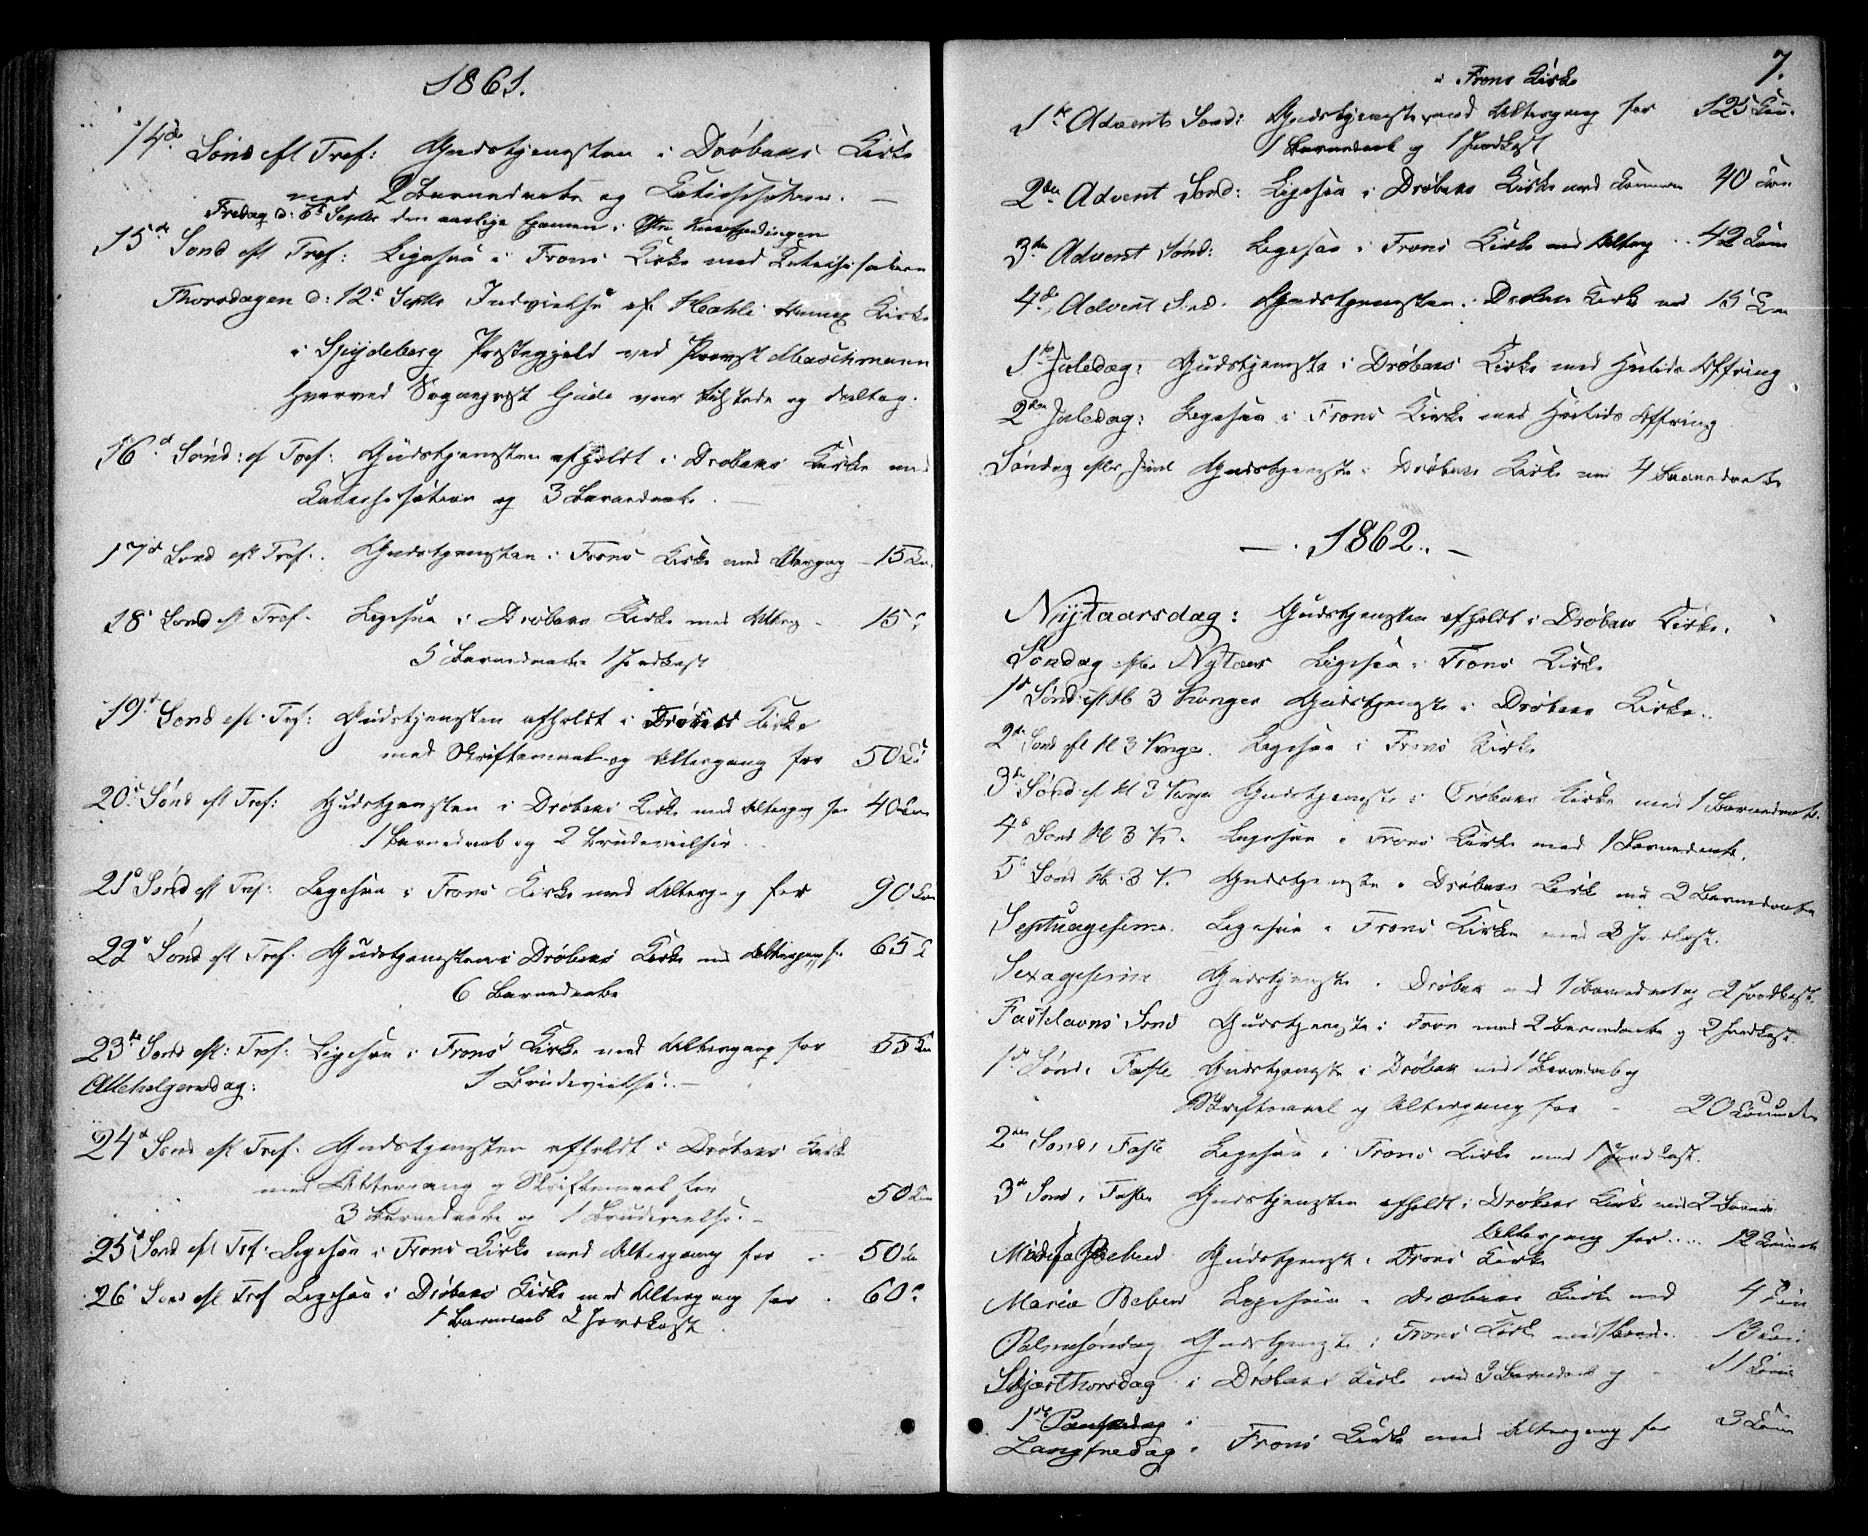 1861.
14de Sønd eft Tref: Gudstjenesten i Drøbaks Kirke
med 2 Barnedaabe og Catechisation. —
Fredag d: 6te Septbr den aarlige Examen i
15de Sønd eft Tref: Ligesaa i Frons Kirke med Katechisation
Thorsdagen d: 12te Septbr Indvielse af Heahli Annex Kirke
i Spydeberg Præstegjeld ved Provst Maschmann
hvorved Sognepræst Gude var tilstede og deeltog.
16de Sønd: ef Tref: Gudstjenesten afholdt i Drøbaks Kirke med
Katechisation og 3 Barnedaabe. —
17de Sønd eft Tref: Gudstjenesten i Frons Kirke med Altergang — 15 Com.
18de Sønd eft Tref. Ligesaa i Drøbaks Kirke med Alterg — 15 C
5 Barnedaabe 1 Jordkast
19de Sønd eft. Tref: Gudstjenesten afholdt i Drøbaks Kirke
med Skriftemaal og Altergang for 50 Co
20de Sønd eft Tref: Gudstjenesten i Drøbaks Kirke med Altergag for 40 Com
1 Barnedaab og 2 Brudevielser
21de Sønd eft Tref: Ligesaa i Frons Kirke med Alterg-g for 90 Com
22de Sønd eft Tref. Gudstjenesten i Drøbaks Kirke med Altergang f. 65 C
6 Barnedaabe
23de Sønd eft: Tref: Ligesaa i Frons Kirke med Altergang for 55 Com
Allehelgensdag: 1 Brudevielse. —
24de Sønd eft Tref. Gudstjenesten afholdt i Drøbaks Kirke
med Altergang og Skriftemaal for 50 Com
3 Barnedaabe og 1 Brudevielse. —
25de Sønd eft Tref. Ligesaa i Frons Kirke med Altergang for 50 Co
26de Sønd eft Tref Ligesaa i Drøbaks Kirke med Altergang for 60
1 Barnedaab 2 Jordkast
7.
i Frons Kirke
1ste Advents Sønd: Gudstjeneste med Altergang for 125 Com.
1 Barnedaab og 1 Jordkast
2den Advent Sønd: Ligesaa i Drøbaks Kirke med Commun 40 Com
3die Advent Sønd: Ligesaa i Frons Kirke med Alterg .. 42 Com
4de Advent Sønd. Gudstjenesten i Drøbak Kirk med 15 Com
1ste Juledag: Gudstjeneste i Drøbaks Kirke med Høitids Offring
2den Juledag: Ligesaa i Frons Kirke med Høitids Offring
Søndag efter Juul Gudstjeneste i Drøbaks Kirke med 4 Barnedaabe
— . 1862. . —
Nytaarsdag: Gudstjenesten afholdt i Drøbaks Kirke.
Søndag efter Nytaar Ligesaa i Frons Kirke
1ste Sønd eft H 3 Konger Gudstjeneste i Drøbaks Kirke..
2den Sønd eft H 3 Konger. Ligesaa i Frons Kirke
3die Sønd ef H 3 Konger Gudstjeneste i Drøbaks Kirke med 1 Barnedaab.
4de Sønd H 3 K. Ligesaa i Frons Kirke med 1 Barnedaab.
5te Sønd H. 3 K. Gudstjeneste i Drøbaks Kirke med 2 Barnedaabe
Septuagesima. Ligesaa i Frons Kirke med 2 Jordkast.
Sexagesima Gudstjeneste i Drøbak med 1 Barnedaab og 2 Jordkast.
Fastelavns Sønd Gudstjeneste i Fron med 2 Barnedaabe og 2 Jordkast.
1ste Sønd i Faste Gudstjeneste i Drøbak med 1 Barnedaab og
Skriftemaal og Altergang for — 20 Communic
2den Sønd i Faste Ligesaa i Frons Kirke med 1 Jordkast.
3die Sønd i Faste Gudstjenesten afholdt i Drøbaks Kirke med 2 Barned
Altergang for .... 12 Commu
Midfaste Gudstjeneste i Frons Kirke
Maria Bebud Ligesaa i Drøbaks Kirke med 4 Com
Palmesøndag Gudstjeneste i Frons Kirke med 13 Com
Skjærthorsdag i Drøbaks Kirke med 3 Barnedaab og — 11 Com
1ste Paaskedag i
Langfredag i Frons Kirke med Altergang for 3 Com